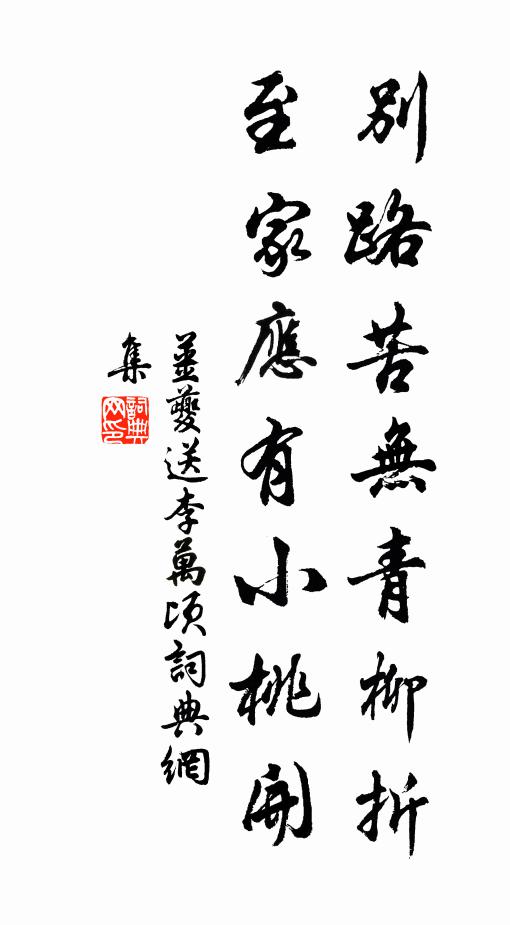 別路苦無青柳折
至家應有小桃開
姜夔送李萬頃詞典網
集
詞典
网印